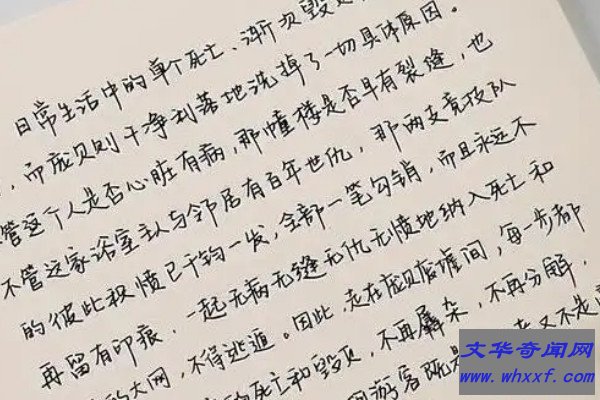 日常生活中的单个死亡、渐次毁
，而庞贝则干净利落地洗掉了一切具体原因。
管这个人是否心脏有病，那幢楼是否早有裂缝，也
不管这家浴室主人与邻居有百年世仇，那两支竞技队
的彼此积愤已千钧一发，全部一笔勾销，而且永远不
再留有印痕，一起无病无缝无仇无愤地纳入死亡和
的大网，不得逃遁。因此，走在庞贝废墟间，每一步都
的死亡和毁灭，不再羼杂，不再分解，
游客既是 又不是
文华奇闻网
www.whxxf.com